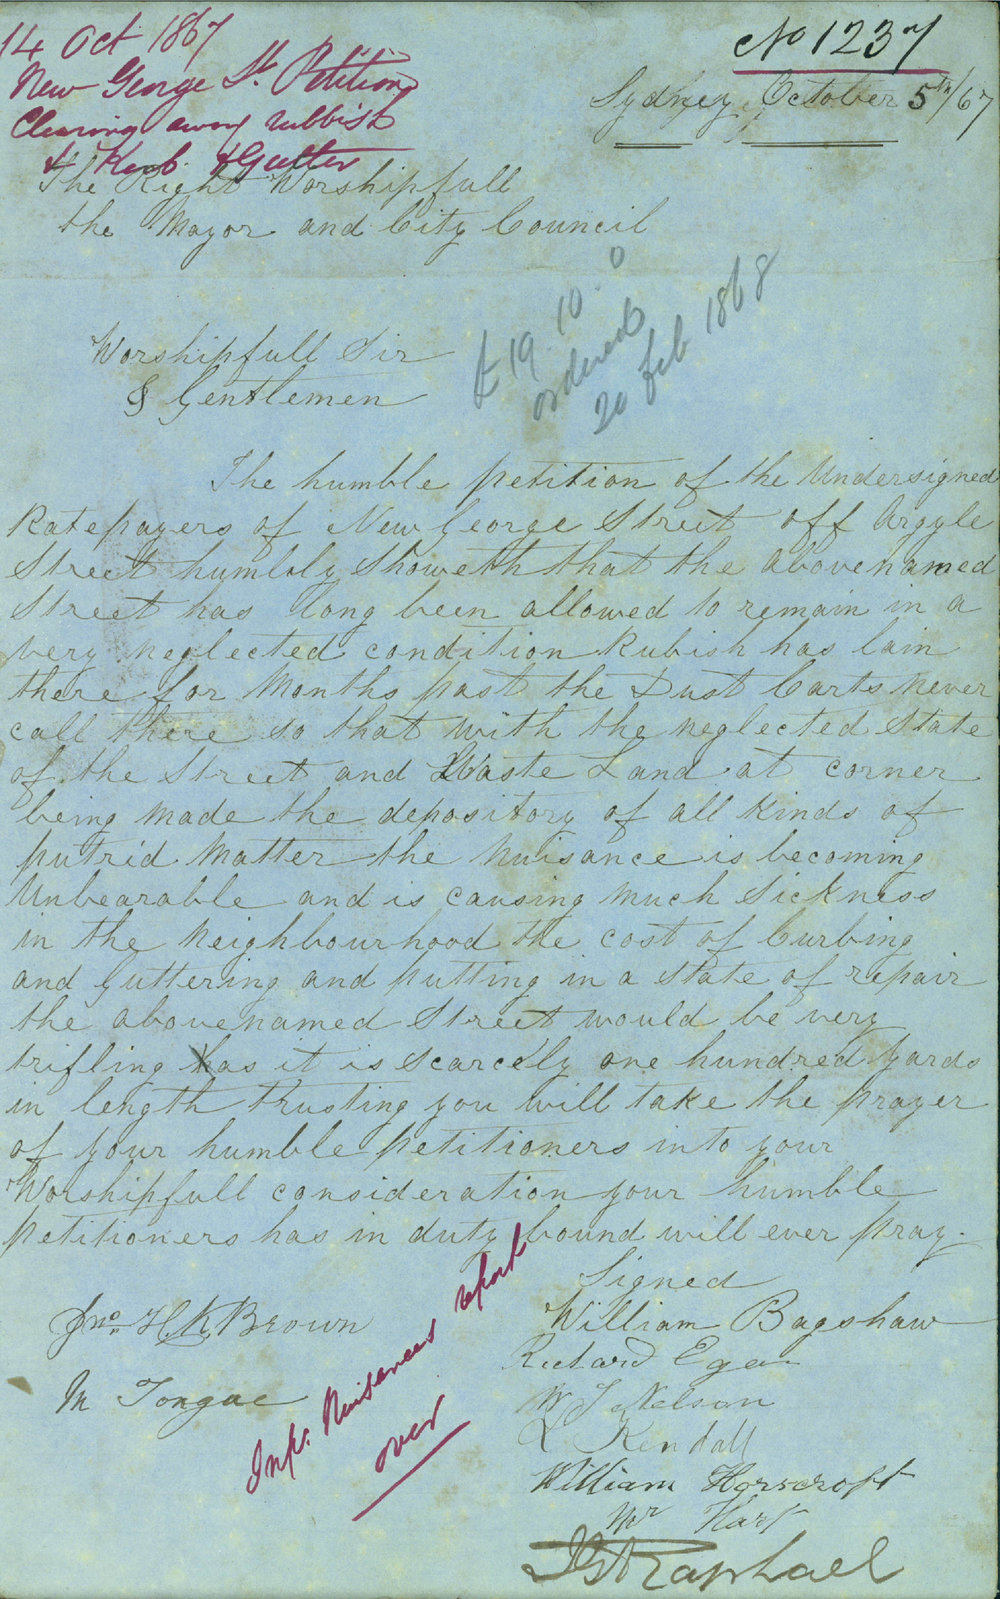 14 Oct 1867
New George St. Petition
Clearing away rubbish
& Kerb & Gutter
No 1237
Sydney, October 5th/67
The Right Worshipfull
the Mayor and City Council
£19 10 0
ordered
20 Feb 1868
Worshipfull Sir
& Gentlemen
The humble petition of the Undersigned
Ratepayers of New George Street off Argyle
Street humbly Showeth that the abovenamed
Street has long been allowed to remain in a
very neglected condition Rubish has lain
there for Months past the Dust Carts never
call there so that with the neglected State
of the Street and Waste Land at corner
being made the depository of all kinds of
putrid Matter the Nuisance is becoming
Unbearable and is causing much Sickness
in the Neighbourhood the cost of Curbing
and Guttering and putting in a State of repair
the abovenamed Street would be very
trifling as it is scarcely one hundred yards
in length trusting you will take the prayer
of your humble petitioners into your
Worshipfull consideration your humble
petitioners has in duty bound will ever pray.
Signed
Jno. H. K. Brown
William Bagshaw
Richard Egan
M Tongue
W J Nelson
L Kendall
William Horscroft
Mr Hart
J G Raphael
Inpr. Nuisances report
over